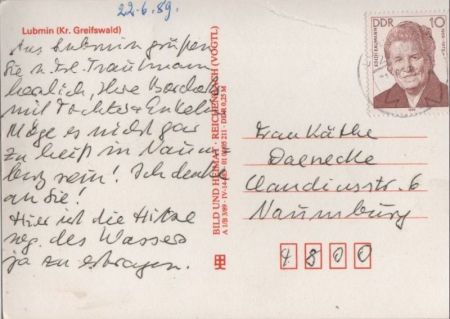 22.6.89.
Lubmin (Kr. Greifswald)
Aus Lubmin grüßen
Sie u. Frl. Traumann
herzlich, Ihre
mit Tochter + Enkelin
Möge es nicht gar
zu heiß in Naum
burg sein! Ich denke
an Sie!
Hier ist die Hitze
weg. des Wassers
ja zu ertragen.
BILD UND HEIMAT REICHENBACH (VOGTL)
DDR 10
Frau Käthe
Daenecke
Claudiusstr. 6
Naumburg
4800